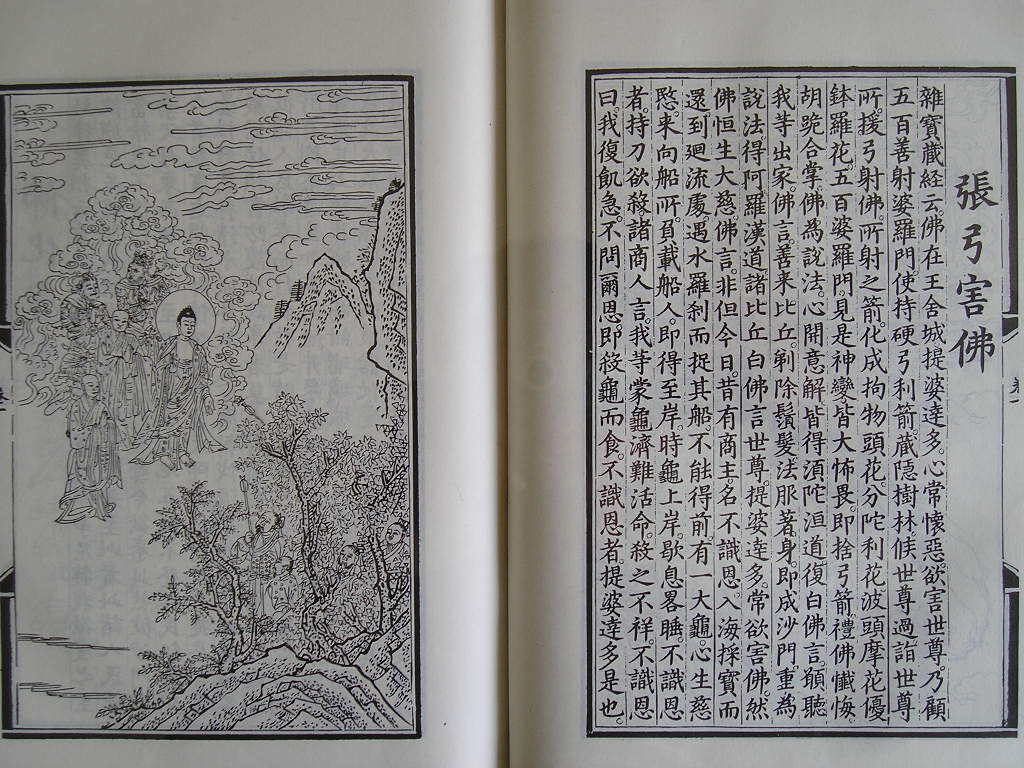 張弓害佛
雜寶藏経云。佛在王舍城提婆達多。心常懷惡。欲害世尊。乃顧
五百善射婆羅門。使持硬弓利箭。藏隱樹林。候世尊過。詣世尊
所。援弓射佛。所射之箭。化成拘物頭花。分陀利花。波頭摩花。優
鉢羅花。五百婆羅門見是神變。皆大怖畏。即捨弓箭。禮佛懺悔。
胡跪合掌。佛為說法。心開意解。皆得湏陀洹道。復白佛言。願聽
我䒭出家。佛言。善来比丘。剃除鬚髮。法服著身。即成沙門。重為
說法。得阿羅漢道。諸比丘白佛言。世尊。提婆逹多。常欲害佛。然
佛恒生大慈。佛言。非但今日。昔有商主。名不識恩。入海採寳。而
還。到廻流處。遇水羅刹。而捉其船。不能得前。有一大龜。心生慈
愍。来向船所。負載船人。即得至岸。時龜上岸。歇息畧睡。不識恩
者。持刀欲殺。諸商人言。我等蒙龜濟難活命。殺之不祥。不識恩
曰。我復飢急。不問爾恩。即殺龜而食。不識恩者。提婆達多是也。